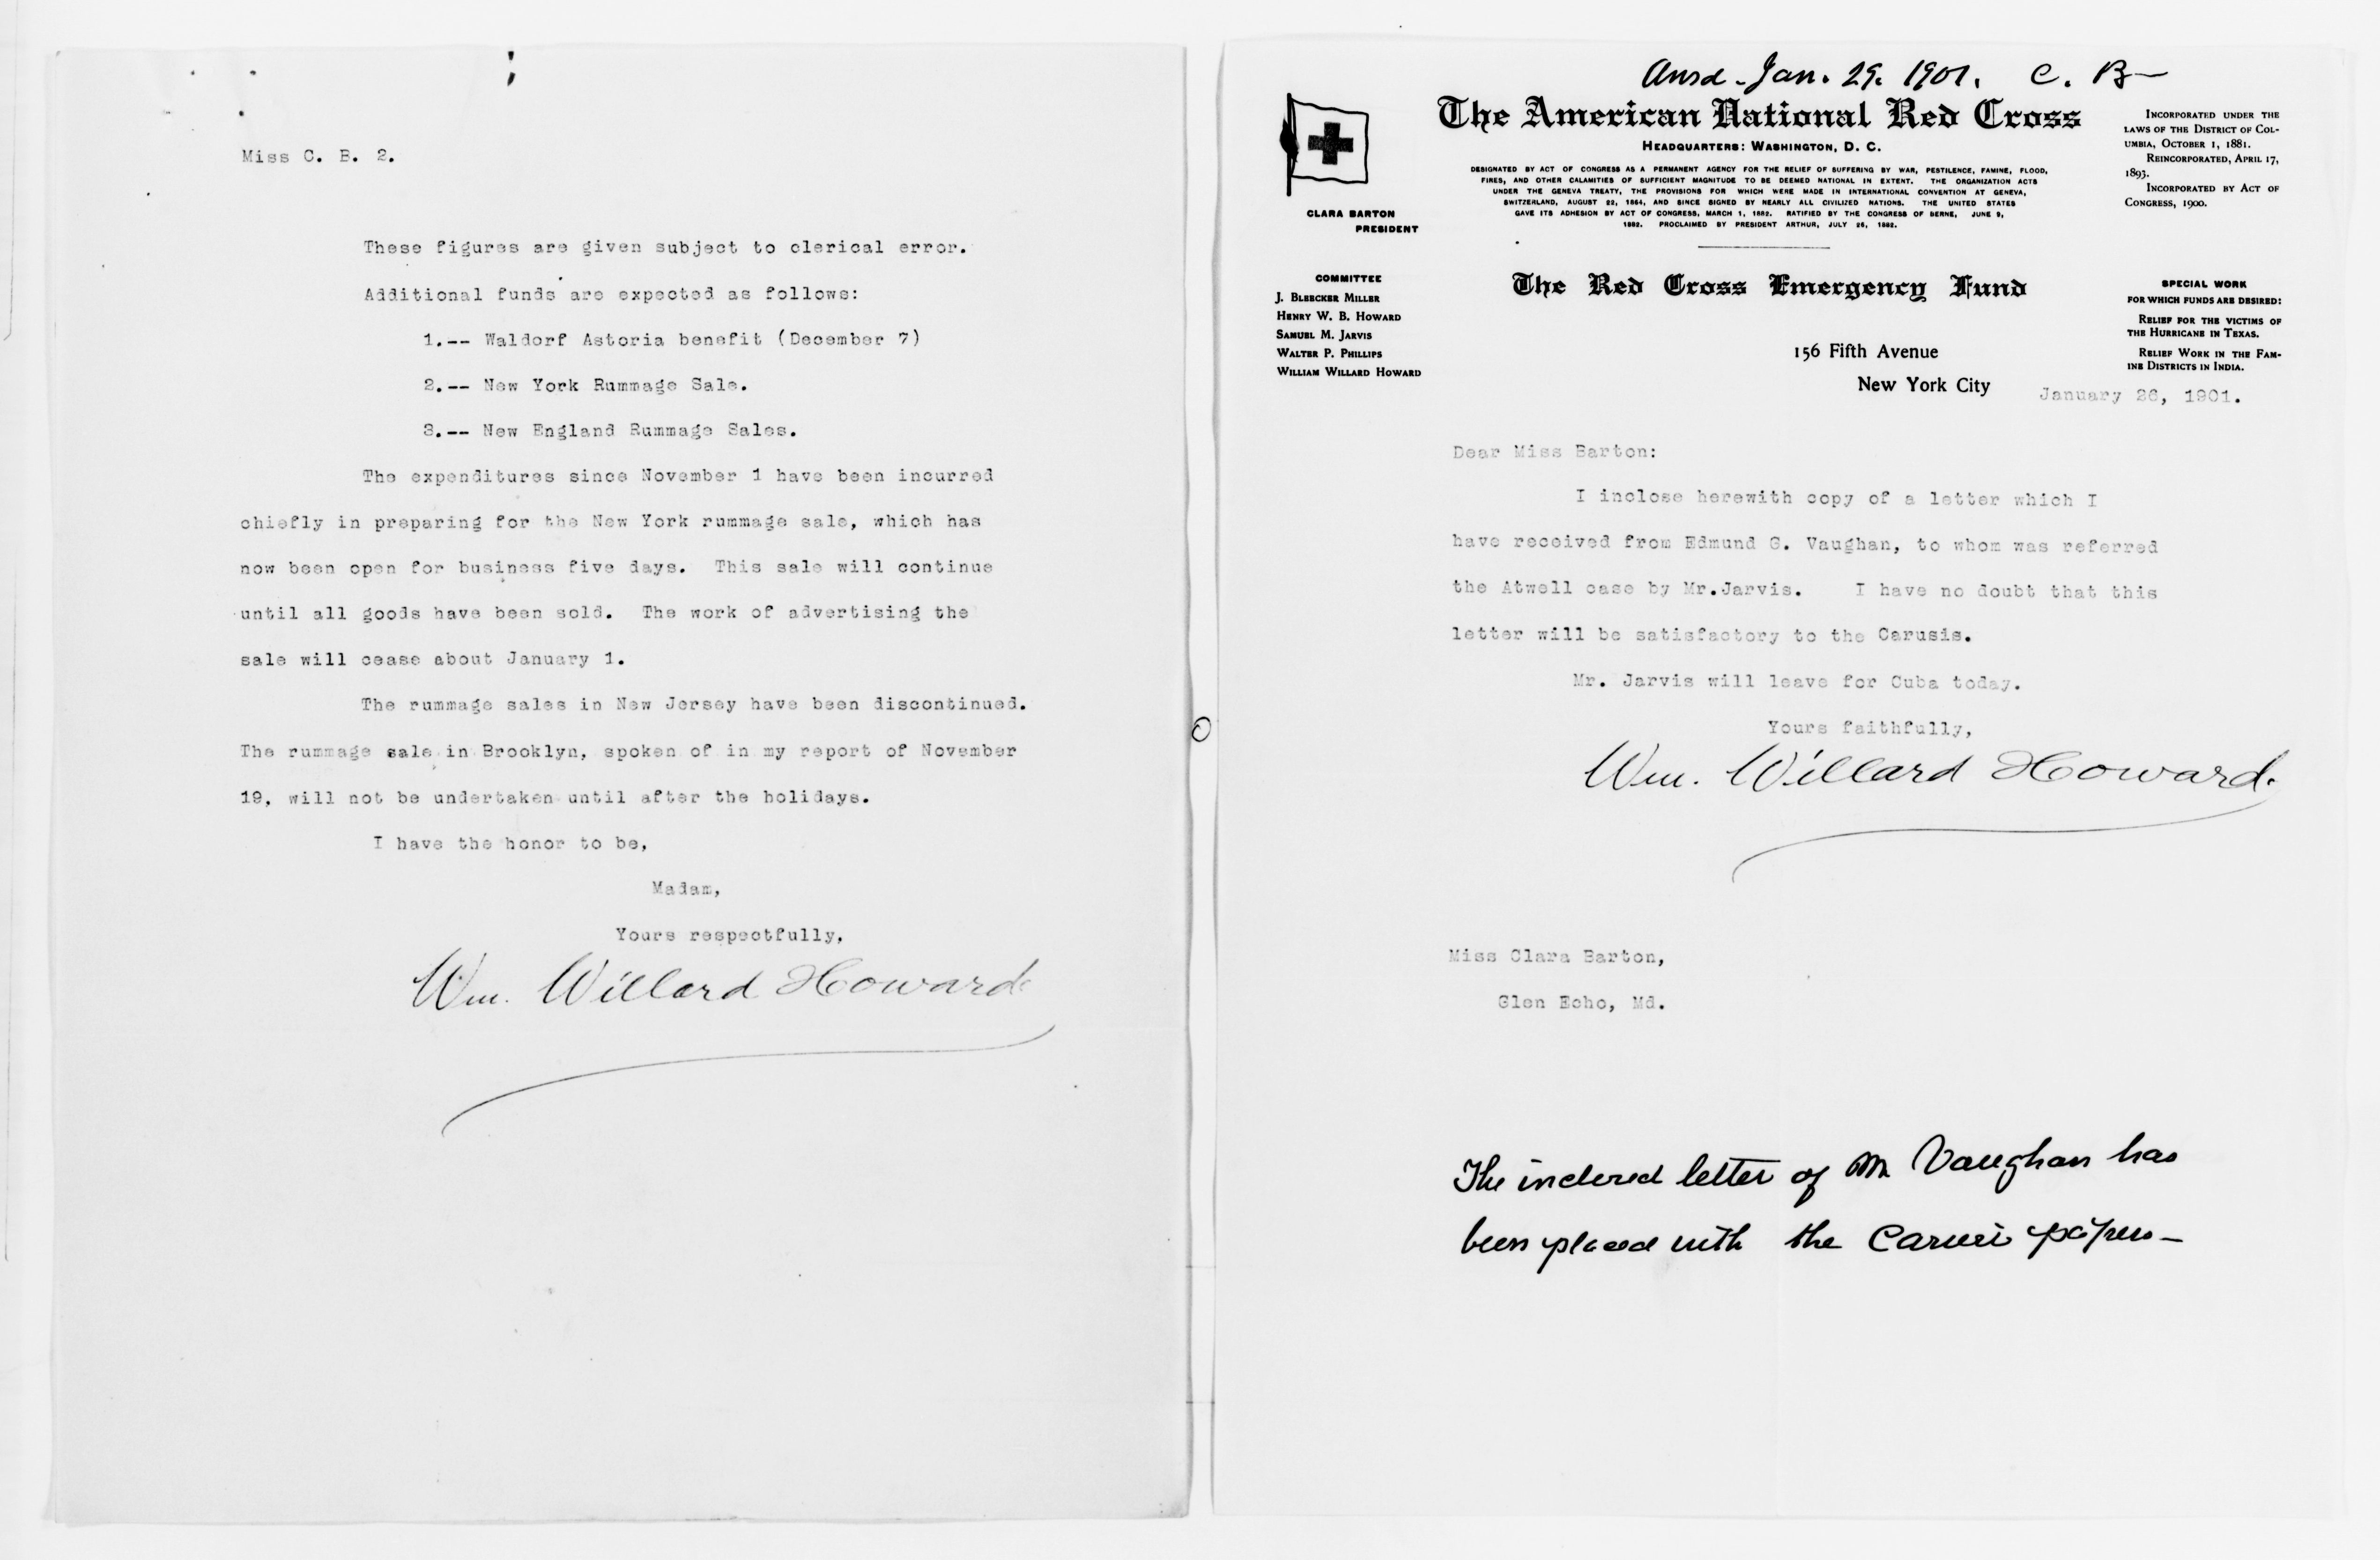 Miss C. B. 2.
These figures are given subject to clerical error.
Additional funds are expected as follows:
1.-- Waldorf Astoria benefit (December 7)
2.-- New York Rummage Sale.
3.-- New England Rummage Sales.
The expenditures since November 1 have been incurred
chiefly in preparing for the New York rummage sale, which has
now been open for business five days. This sale will continue
until all goods have been sold. The work of advertising the
sale will cease about January 1.
The rummage sales in New Jersey have been discontinued.
The rummage sale in Brooklyn, spoken of in my report of November
19, will not be undertaken until after the holidays.
I have the honor to be,
Madam,
Yours respectfully,
Wm. Willard Howard
Ansd - Jan. 29. 1901. C. B—
The American National Red Cross
Headquarters: Washington, D. C.
DESIGNATED BY ACT OF CONGRESS AS A PERMANENT AGENCY FOR THE RELIEF OF SUFFERING BY WAR, PESTILENCE, FAMINE, FLOOD,
FIRES, AND OTHER CALAMITIES OF SUFFICIENT MAGNITUDE TO BE DEEMED NATIONAL IN EXTENT. THE ORGANIZATION ACTS
UNDER THE GENEVA TREATY, THE PROVISIONS FOR WHICH WERE MADE IN INTERNATIONAL CONVENTION AT GENEVA,
SWITZERLAND, AUGUST 22, 1864, AND SINCE SIGNED BY NEARLY ALL CIVILIZED NATIONS. THE UNITED STATES
GAVE ITS ADHESION BY ACT OF CONGRESS, MARCH 1, 1882. RATIFIED BY THE CONGRESS OF BERNE, JUNE 9,
1882. PROCLAIMED BY PRESIDENT ARTHUR, JULY 26, 1882.
CLARA BARTON
PRESIDENT
Incorporated under the
laws of the District of Col-
umbia, October 1, 1881.
Reincorporated, April 17,
1893.
Incorporated by Act of
Congress, 1900.
COMMITTEE
J. Bleecker Miller
Henry W. B. Howard
Samuel M. Jarvis
Walter P. Phillips
William Willard Howard
The Red Cross Emergency Fund
156 Fifth Avenue
New York City
SPECIAL WORK
FOR WHICH FUNDS ARE DESIRED:
Relief for the victims of
the Hurricane in Texas.
Relief Work in the Fam-
ine Districts in India.
January 26, 1901.
Dear Miss Barton:
I inclose herewith copy of a letter which I
have received from Edmund G. Vaughan, to whom was referred
the Atwell case by Mr.Jarvis. I have no doubt that this
letter will be satisfactory to the Carusis.
Mr. Jarvis will leave for Cuba today.
Yours faithfully,
Wm. Willard Howard.
Miss Clara Barton,
Glen Echo, Md.
The inclosed letter of Mr Vaughan has
been placed with the Carusi papers—